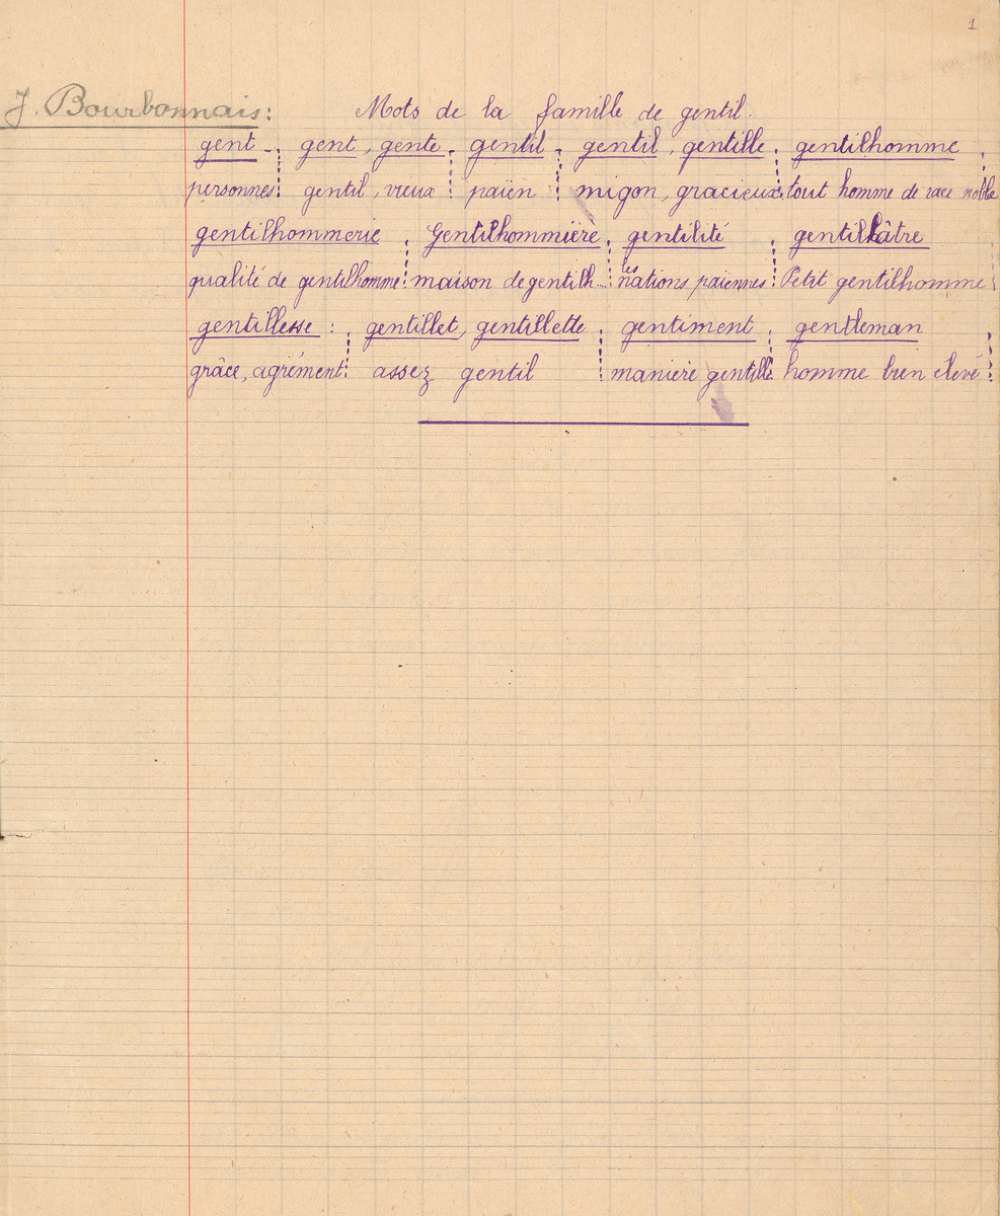 1
J. Bourbonnais: Mots de la famille de gentil.
gent - gent, gente. gentil. gentil, gentille. gentilhomme.
personnes gentil, vieux païen migon, gracieux. tout homme de race noble
gentilhommerie. Gentilhommière. gentilité. gentillâtre
qualité de gentilhomme maison de gentilh... les nations païennes Petit gentilhomme
gentillesse : gentillet, gentillette. gentiment. gentleman
grâce, agrément: assez gentil manière gentille. homme bien élevé